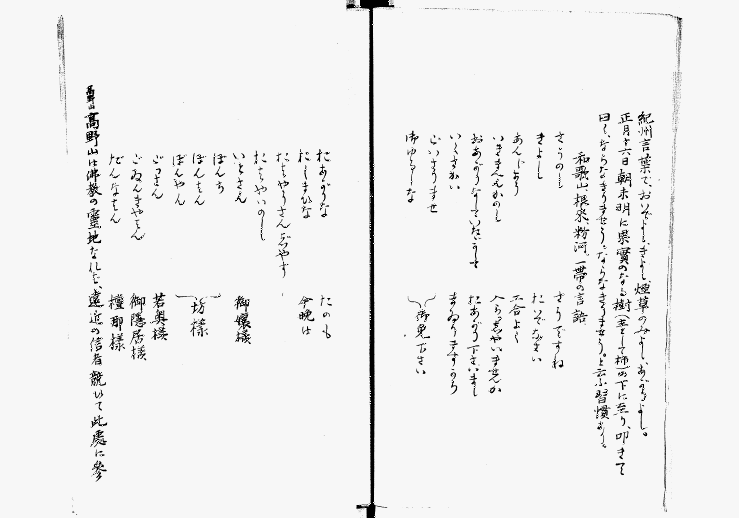 紀州言葉で、おいでよし、きよし、煙草のみよし、あがりよし。
正月十六日朝未明に果實のなる樹(主として柿)の下に至り、叩きて
曰く、ならなきりませう、ならなきりませう。と云ふ習慣あり。
和歌山、根來、粉河、一帶の言語
さうのし さうですね
きよし
あんじよう 工合よく
いきまへんかのし 入らつしやいませんか
おあがりなしていたゞかして おあがり下さいまし
いくさかい まゐりますから
ごいさりませ
御ゆるしな 御免下さい
たあがりな
たしまひな 今晩は
いとさん 御孃樣
ぼんち
ぼんさん 坊樣
ぼんやん
ごつさん 若奥樣
ごゐんきやさん 御隱居樣
だんなさん 檀那樣
高野山
高野山は佛敎の靈地なれど、遠近の信者競ひて此處に參